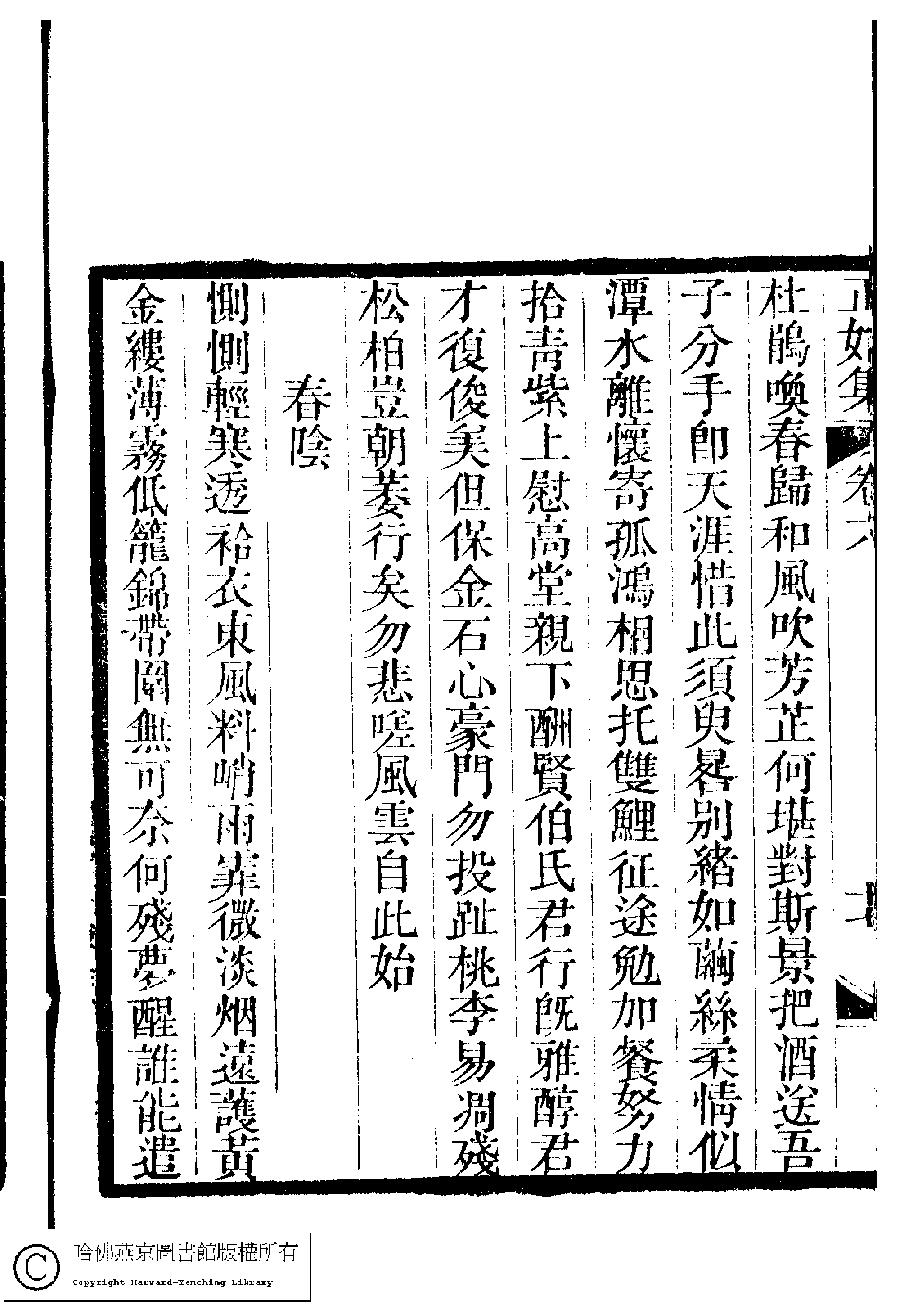 正始集 卷六
杜鵑喚春歸和風吹芳芷何堪對斯景把酒送吾
子分手卽天涯惜此須臾晷別緒如繭絲柔情似
潭水離懷寄孤鴻相思托雙鯉征途勉加餐努力
拾靑紫上慰高堂親下酬賢伯氏君行旣雅醇君
才復俊美但保金石心豪門勿投趾桃李易凋殘
松柏豈朝萎行矣勿悲嗟風雲自此始
春陰
惻惻輕寒透袷衣東風料哨雨霏微淡烟遠護黃
金縷薄霧低籠錦帶圍無可奈何殘夢醒誰能遣
哈佛燕京圖書館版權所有
Copyright Harvard-Yenching Library